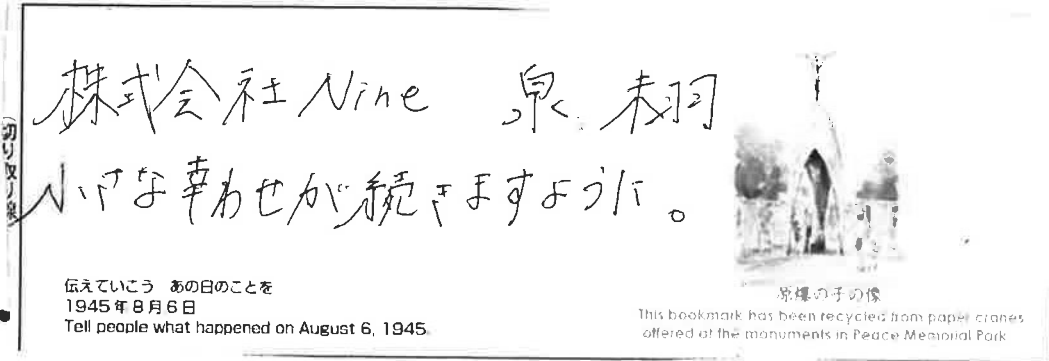 (切り取り線)
株式会社Nine 泉 未羽
小さな幸わせが続きますように。
伝えていこう あの日のことを
1945年8月6日
Tell people what happened on August 6, 1945.
原爆の子の像
This bookmark has been recycled from paper cranes
offered at the monuments in Peace Memorial Park